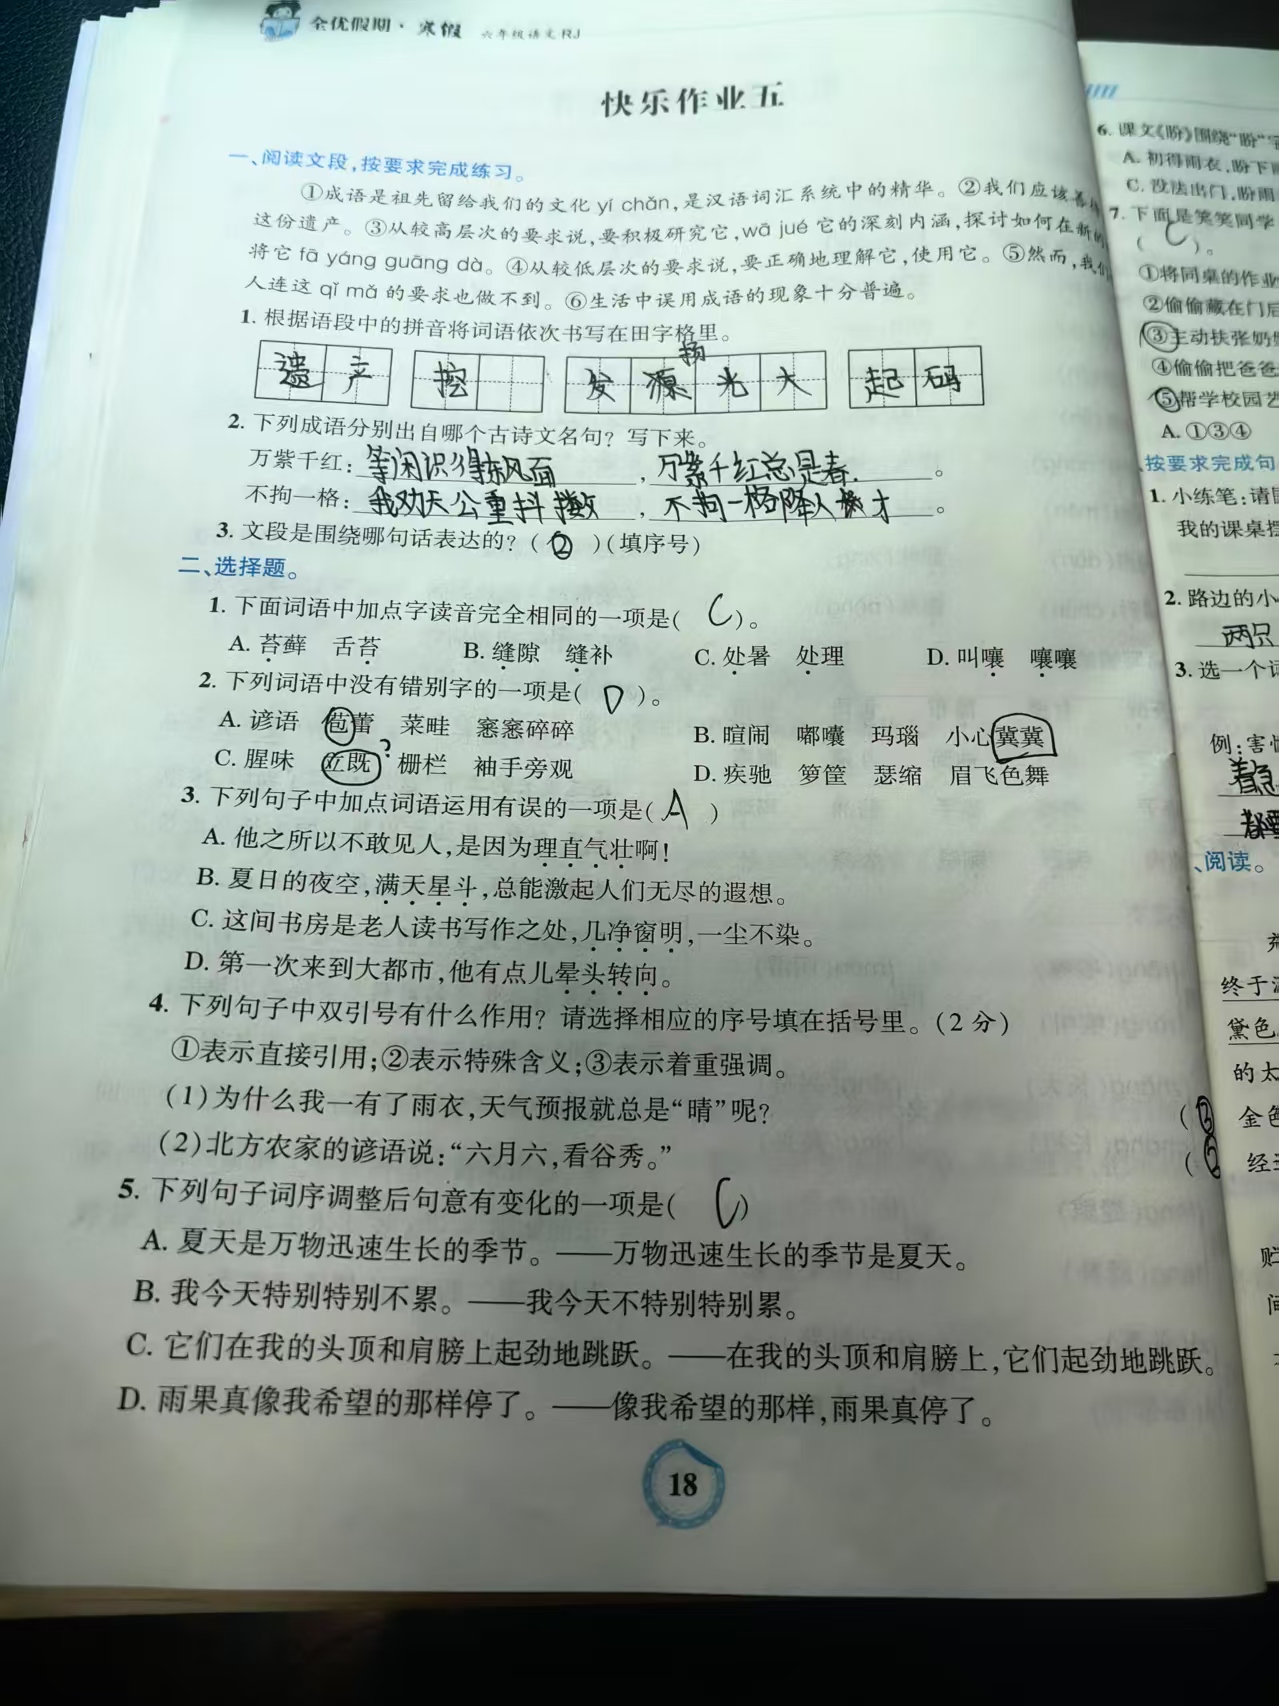 全优假期·寒假 六年级语文RJ
快乐作业五
一、阅读文段,按要求完成练习。
①成语是祖先留给我们的文化 yí chǎn,是汉语词汇系统中的精华。②我们应该善
这份遗产。③从较高层次的要求说,要积极研究它,wā jué 它的深刻内涵,探讨如何在新的
将它 fā yáng guāng dà。④从较低层次的要求说,要正确地理解它,使用它。⑤然而,我们
人连这 qǐ mǎ 的要求也做不到。⑥生活中误用成语的现象十分普遍。
1. 根据语段中的拼音将词语依次书写在田字格里。
扬
遗产 挖 发源光大 起码
2. 下列成语分别出自哪个古诗文名句? 写下来。
万紫千红:等闲识得东风面,万紫千红总是春.。
不拘一格:我劝天公重抖擞,不拘一格降人才。
3. 文段是围绕哪句话表达的? (②)(填序号)
二、选择题。
1. 下面词语中加点字读音完全相同的一项是( C )。
A. 苔藓 舌苔 B. 缝隙 缝补 C. 处暑 处理 D. 叫嚷 嚷嚷
2. 下列词语中没有错别字的一项是( D )。
A. 谚语 苞蕾 菜畦 窸窸碎碎 B. 暄闹 嘟囔 玛瑙 小心冀冀
C. 腥味 立既? 栅栏 袖手旁观 D. 疾驰 箩筐 瑟缩 眉飞色舞
3. 下列句子中加点词语运用有误的一项是( A )
A. 他之所以不敢见人,是因为理直气壮啊!
B. 夏日的夜空,满天星斗,总能激起人们无尽的遐想。
C. 这间书房是老人读书写作之处,几净窗明,一尘不染。
D. 第一次来到大都市,他有点儿晕头转向。
4. 下列句子中双引号有什么作用? 请选择相应的序号填在括号里。(2分)
①表示直接引用;②表示特殊含义;③表示着重强调。
(1)为什么我一有了雨衣,天气预报就总是“晴”呢? (③
(2)北方农家的谚语说:“六月六,看谷秀。” (
5. 下列句子词序调整后句意有变化的一项是( C )
A. 夏天是万物迅速生长的季节。——万物迅速生长的季节是夏天。
B. 我今天特别特别不累。——我今天不特别特别累。
C. 它们在我的头顶和肩膀上起劲地跳跃。——在我的头顶和肩膀上,它们起劲地跳跃。
D. 雨果真像我希望的那样停了。——像我希望的那样,雨果真停了。
18
6. 课文《盼》围绕“盼”字
A. 初得雨衣,盼下雨
C. 没法出门,盼雨
7. 下面是笑笑同学
( C )。
①将同桌的作业
②偷偷藏在门后
③主动扶张奶奶
④偷偷把爸爸
⑤帮学校园艺
A. ①③④
按要求完成句
1. 小练笔:请
我的课桌摆
2. 路边的小
两只
3. 选一个词
例:害怕
着急
都要
、阅读。
终于
黛色
的太
金色
经
贮
间